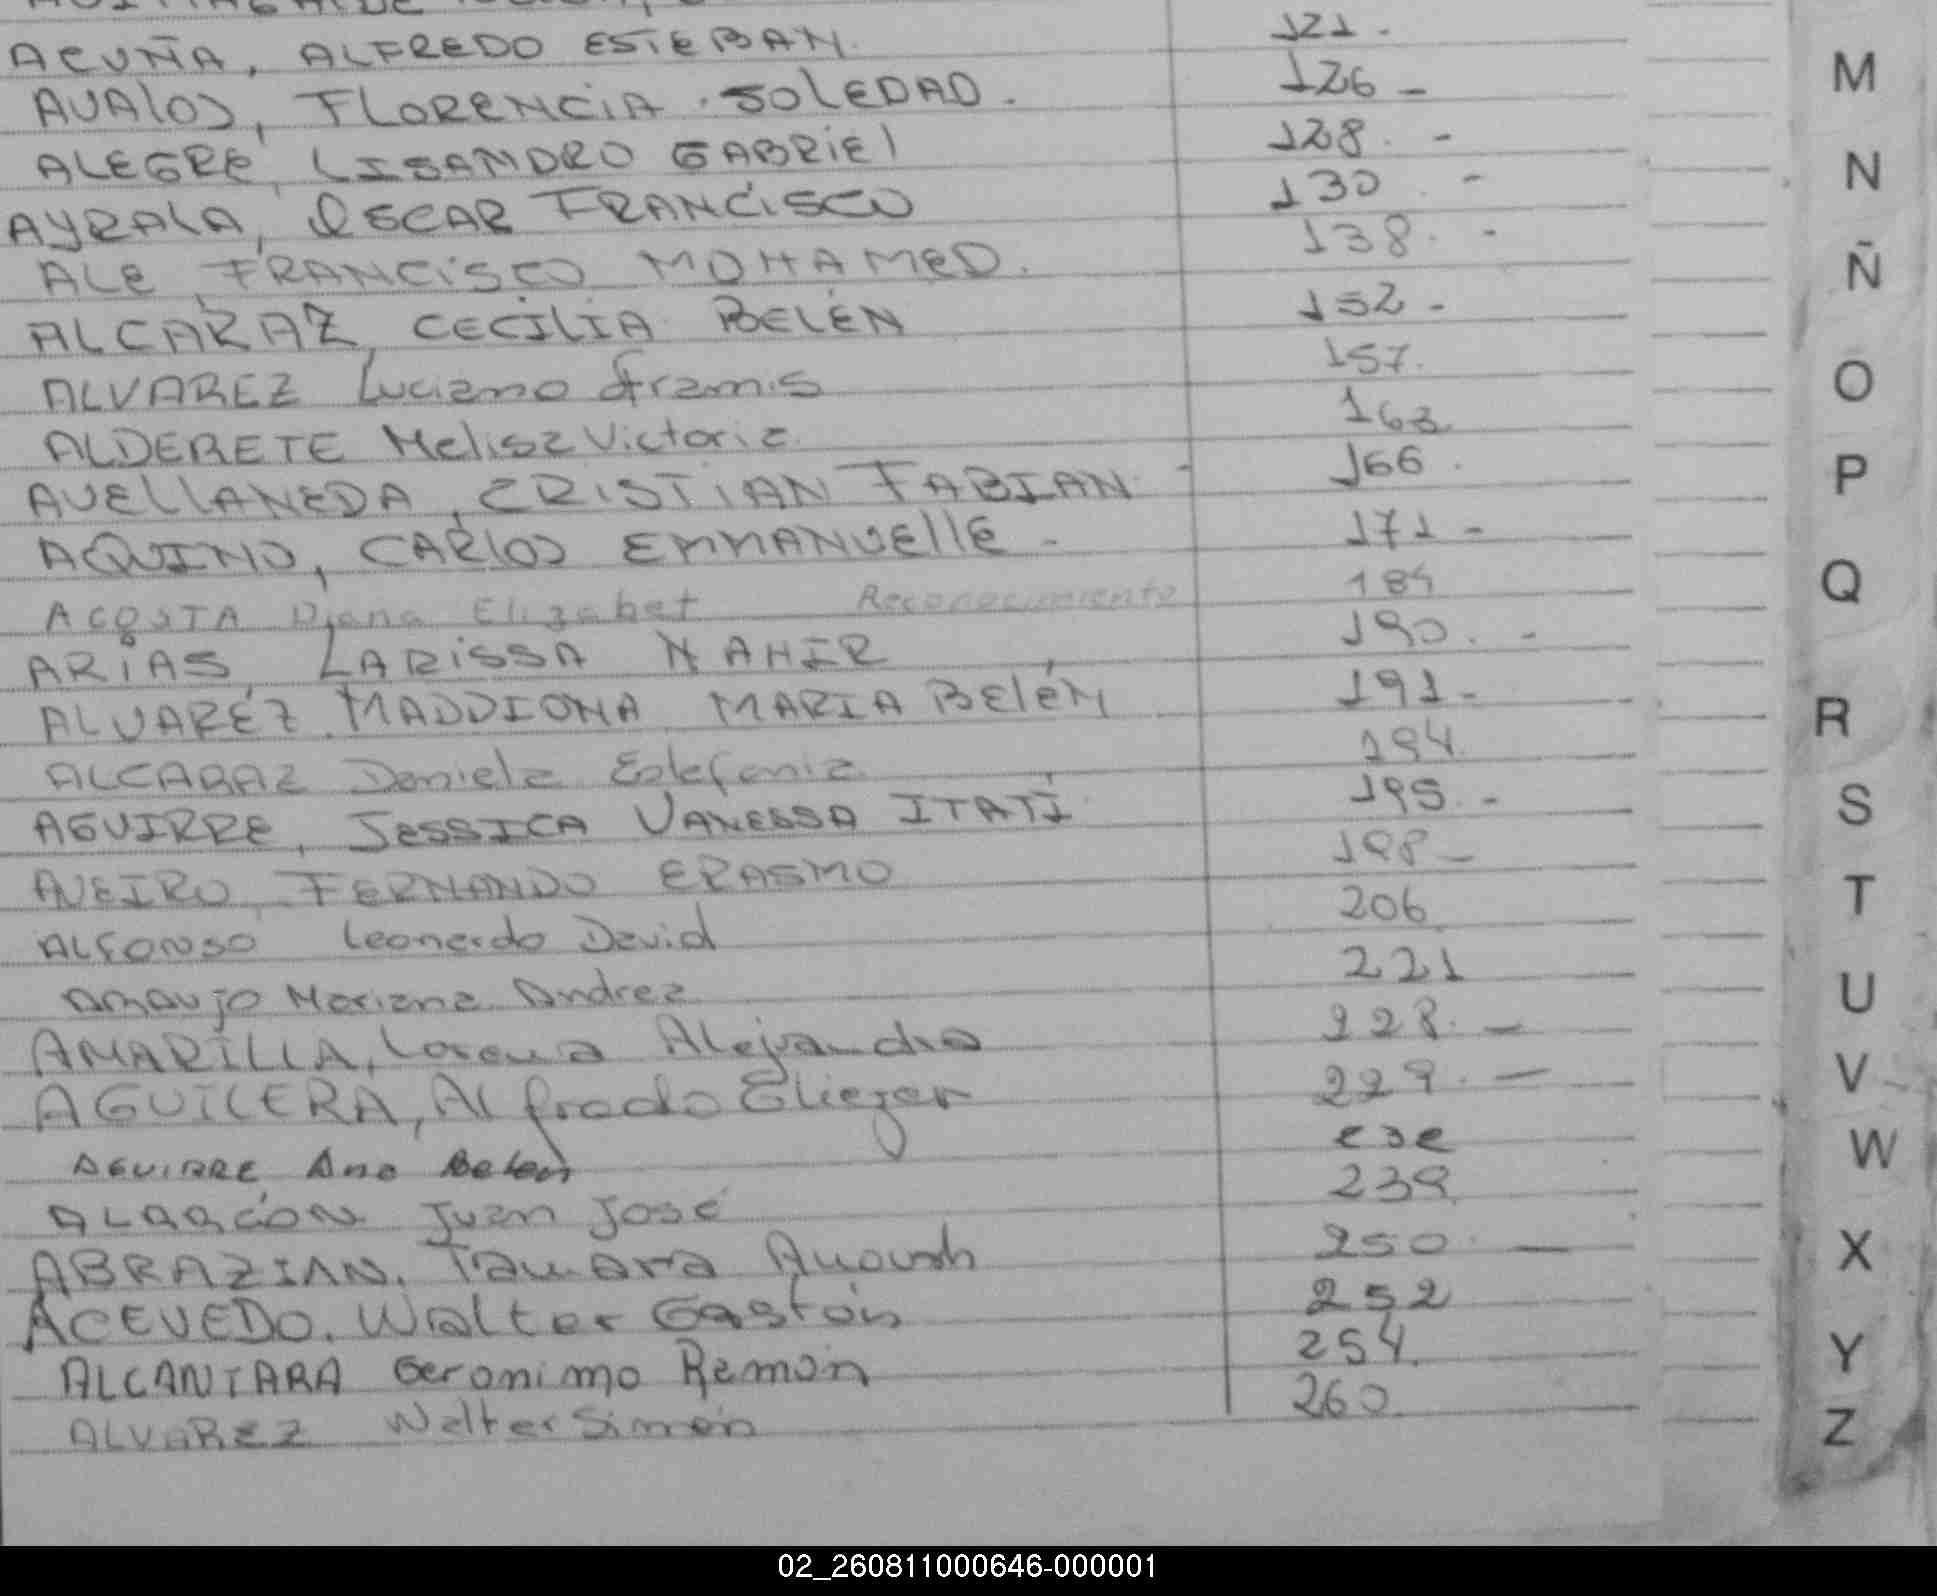 ACUÑA, ALFREDO ESTEBAN. 121.-
AVALOS, FLORENCIA SOLEDAD. 126-
ALEGRE, LISANDRO GABRIEL 128.-
AYRALA, OSCAR FRANCISCO 130.-
ALE, FRANCISCO MOHAMED. 138.-
ALCARAZ, CECILIA BELÉN 152-
ALVAREZ Luciano 157.
ALDERETE Melisa Victoria 163
AVELLANEDA, CRISTIAN FABIAN 166.
AQUINO, CARLOS EMMANUELLE. 171-
ACOSTA Diana Elizabet Reconocimiento 184
ARIAS, LARISSA NAHIR 190.-
ALVAREZ MADDIONA MARIA BELÉN 191-
ALCARAZ Daniela Estefania 194
AGUIRRE, JESSICA VANESSA ITATÍ 195.-
AVEIRO, FERNANDO ERASMO 198-
ALFONSO Leonardo David 206
ARAUJO Mariana Andrea 221
AMARILLA, Lorena Alejandra 228.-
AGUILERA, Alfredo Eliezer 229.-
AGUIRRE Ana Belen 232
ALARCÓN Juan José 239
ABRAZIAN, Tamara Anoush 250.-
ACEVEDO, Walter Gastón 252
ALCANTARA Geronimo Ramón 254
ALVAREZ Walter Simón 260
M
N
Ñ
O
P
Q
R
S
T
U
V
W
X
Y
Z
02_260811000646-000001